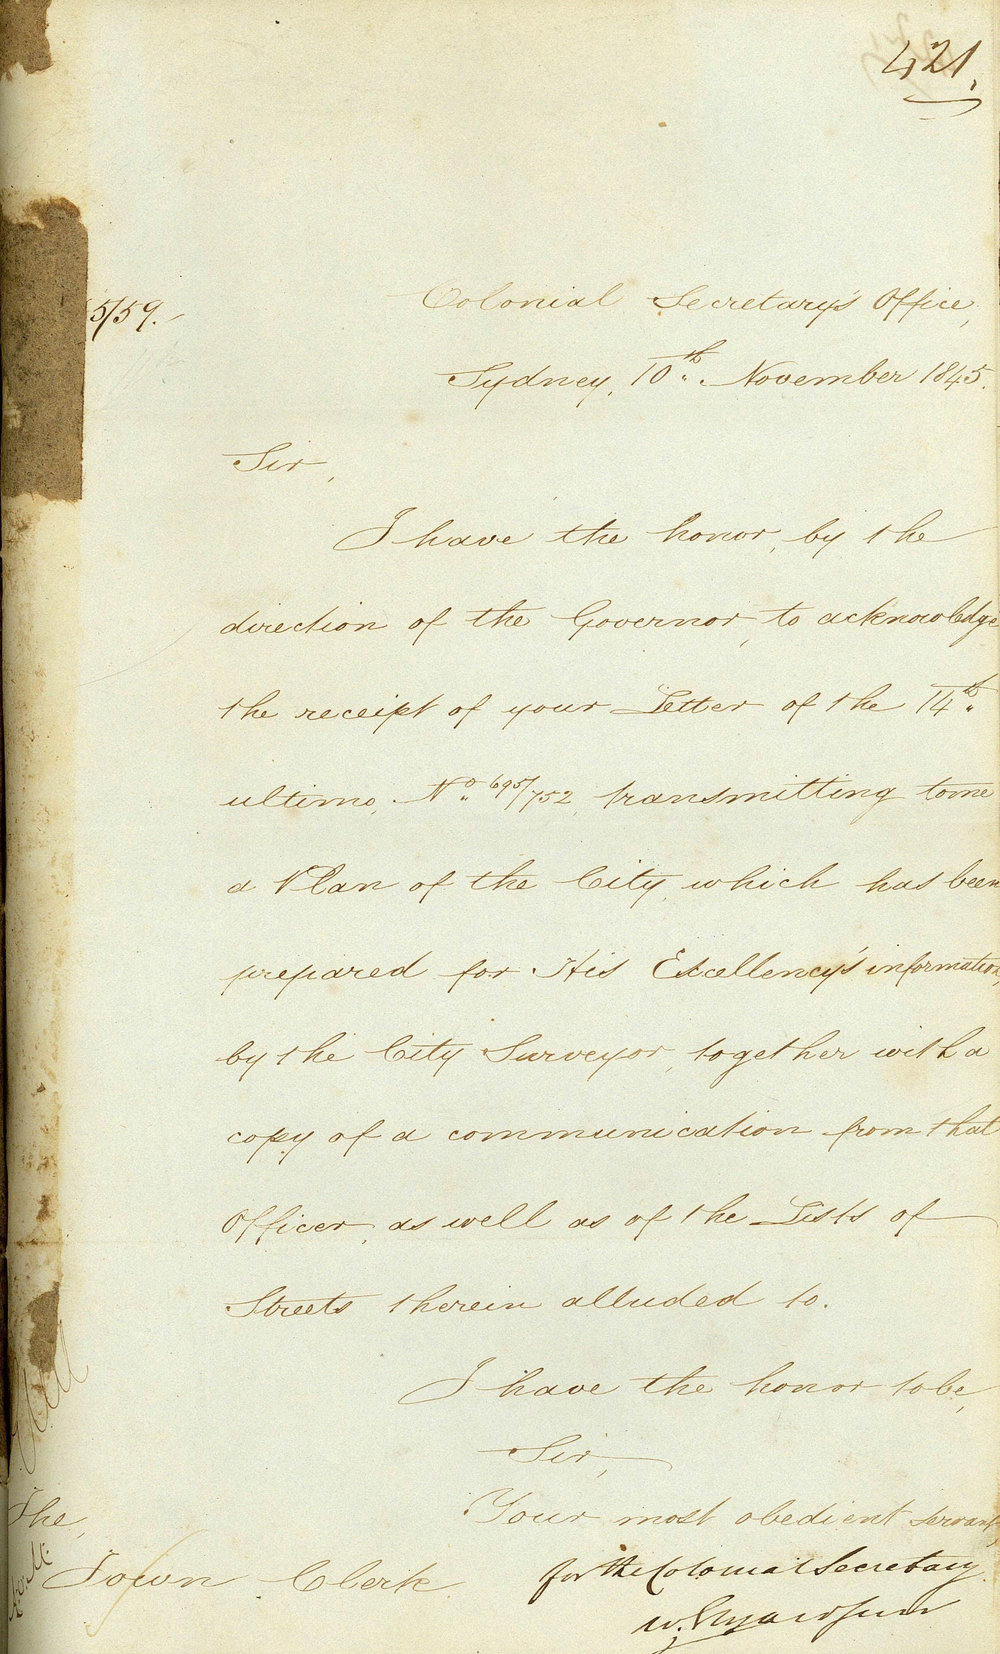 421.
5/59.
Colonial Secretary's Office,
Sydney, 10th. November 1845.
Sir,
I have the honor, by the
direction of the Governor, to acknowledge
the receipt of your Letter of the 14th.
ultimo, No. 695/752, transmitting to me
a Plan of the City, which has been
prepared for His Excellency's information,
by the City Surveyor, together with a
copy of a communication from that
Officer, as well as of the Lists of
Streets therein alluded to.
I have the honor to be,
Sir,
Your most obedient servant,
for the Colonial Secretary.
W. Elyard Junr
The,
Town Clerk